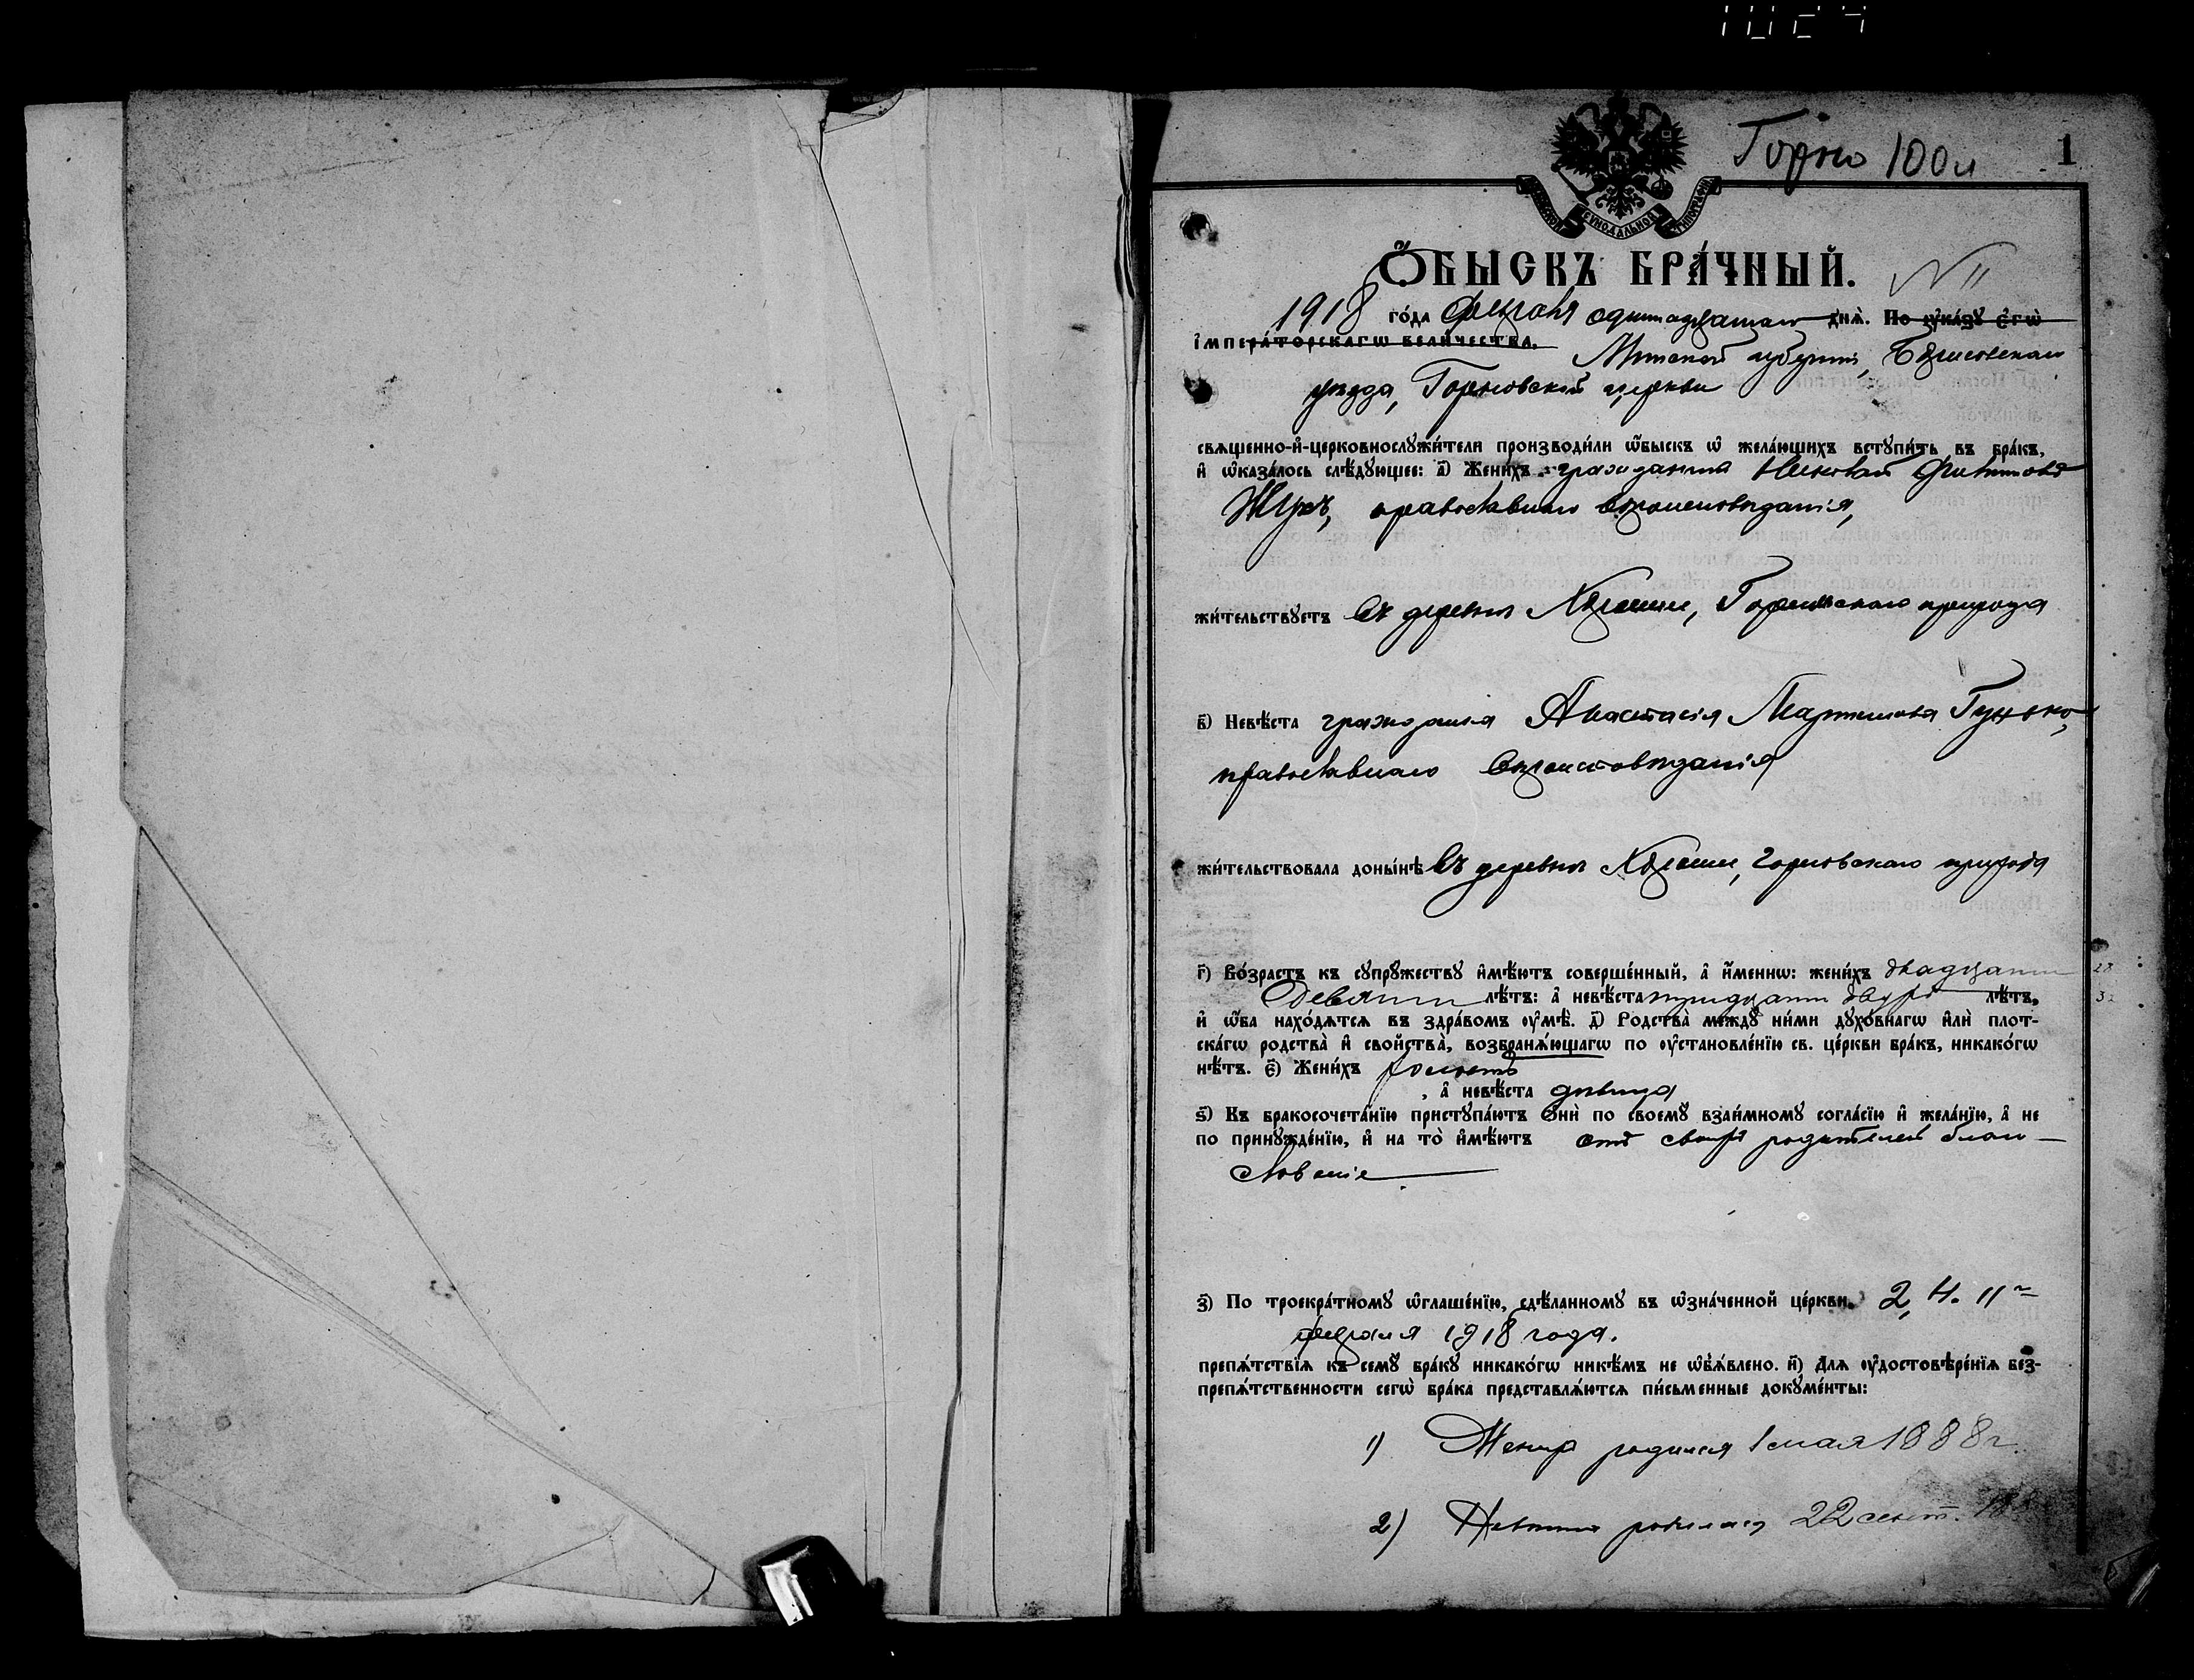 Горно 100 л
1
СѴНОДАЛЬНОЙ ТИПОГРАФІИ
Ѻ҆БЫСКЪ БРА́ЧНЫЙ. N 11
1918 го́да Февраля одиннадцатаго днѧ̀. По ᲂу҆ка́зꙋ є҆гѡ̀
і҆мпера́торскагѡ вели́чества.
Минской губерніи, Борисовскаго
уѣзда, Горновской церкви
свѧщенно-и҆-церковнослꙋжи́тели производи́ли ѡ҆́быскъ ѡ҆ жела́ющихъ встꙋпи́ть въ бра́къ,
и҆ ѡ҆каза́лось слѣ́дꙋющее: а҃) Жени́хъ гражданинъ Филипповъ
Жукъ, православнаго вѣроисповѣданія,
жи́тельствꙋетъ въ деревнѣ Горновскаго прихода
в҃) Невѣ́ста гражданка Анастасія Мартинова Гунько,
православнаго вѣроисповѣданія
жи́тельствовала доны́нѣ въ деревнѣ Горновскаго прихода
г҃) Во́зрастъ къ сꙋпрꙋ́жествꙋ и҆мѣ́ютъ соверше́нный, а҆ и҆́меннѡ: жени́хъ двадцати 28
девяти лѣ́тъ: а҆ невѣ́ста тридцати двухъ лѣ́тъ, 32
и҆ ѡ҆́ба нахо́дѧтсѧ въ здра́вомъ ᲂу҆мѣ̀. д҃) Родства̀ междꙋ̀ ни́ми дꙋхо́внагѡ и҆лѝ плот-
ска́гѡ родства̀ и҆ свойства̀, возбранѧ́ющагѡ по ᲂу҆становле́нїю св. це́ркви бра́къ, никако́гѡ
нѣ́тъ. є҃) Жени́хъ холостъ
, а҆ невѣ́ста дѣвица
ѕ҃) Къ бракосочета́нїю пристꙋпа́ютъ Ѻ҆нѝ по своемꙋ̀ взаи́мномꙋ согла́сїю и҆ жела́нїю, а҆ не
по принꙋжде́нїю, и҆ на то̀ и҆мѣ́ютъ отъ своихъ родителей благо-
словеніе
з҃) По троекра́тномꙋ ѡ҆глаше́нїю, сдѣ́ланномꙋ въ ѡ҆зна́ченной це́ркви. 2, 4. 11го
февраля 1918 года.
препѧ́тствїѧ къ семꙋ̀ бра́кꙋ никако́гѡ никѣ́мъ не ѡ҆б̾ѧ́влено. и҃) Длѧ ᲂу҆достовѣре́нїѧ без-
препѧ́тственности сегѡ̀ бра́ка представлѧ́ютсѧ пи́сьменные докꙋме́нты:
1) Женихъ родился 1 мая 1888 г.
2) Невѣста родилась 22 сент.